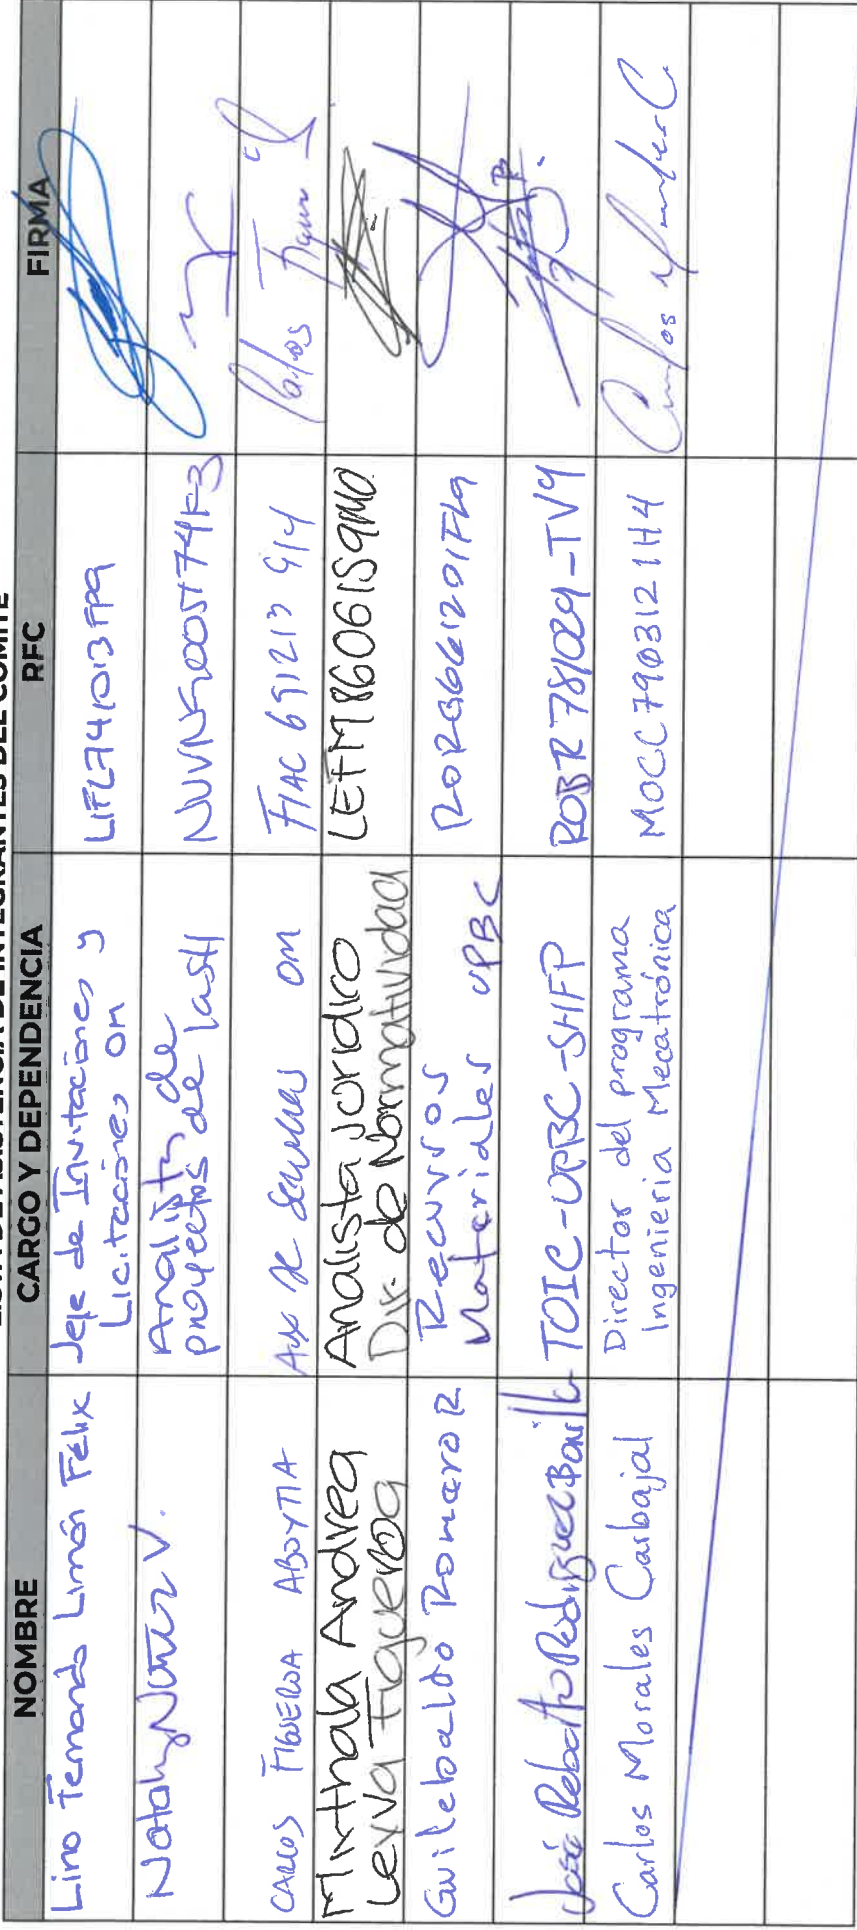 LISTA DE ASISTENCIA DE INTEGRANTES DEL COMITÉ
NOMBRE CARGO Y DEPENDENCIA RFC FIRMA
Lino Fernando Limón Félix
Jefe de Invitaciones y
Licitaciones OM
LIFL741013FP9
Nataly Nuñez V.
Analista de
proyectos de
CARLOS FIGUEROA ABOYTIA
Aux de OM
FIAC 691213
Carlos
Mixthala Andrea
Leyva Figueroa
Analista Jorídico
Dir. de Normatividad
LEFM8606159M0
Guilebaldo Romero R
Recursos
Materiales UPBC
José Roberto Rodriguez Bonilla
TOIC-UPBC-SHFP
ROBR781029-TV4
Carlos Morales Carbajal
Director del programa
Ingeniería Mecatrónica
MOCC7903121H4
Carlos Morales C.